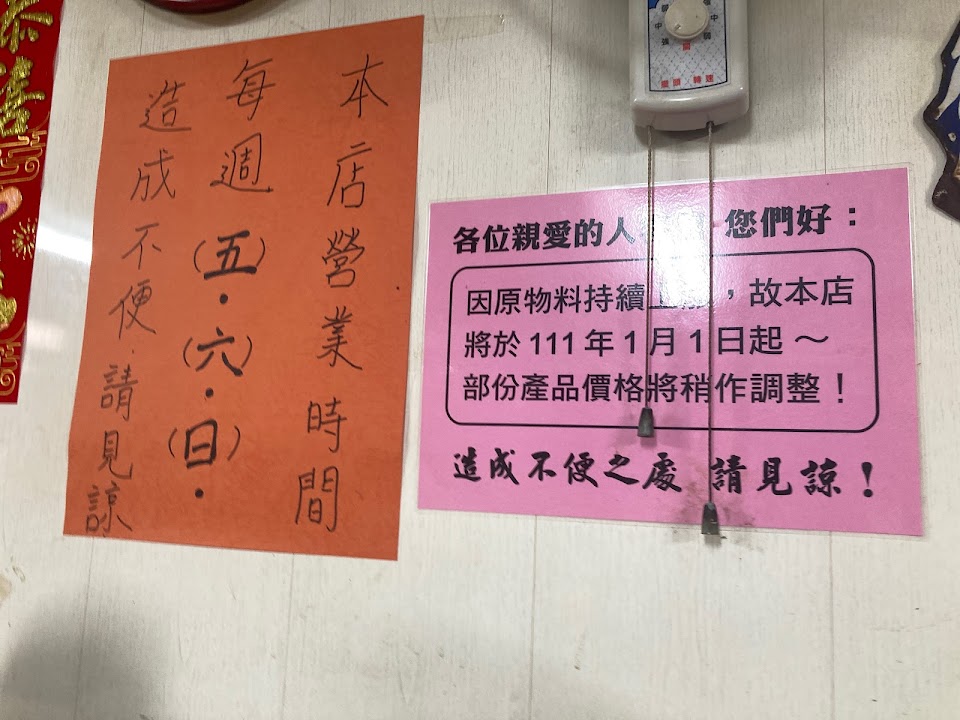 恭禧
本店營業時間
每週(五)・(六)・(日)・
造成不便請見諒
各位親愛的人 您們好：
因原物料持續 ，故本店
將於111年1月1日起～
部份產品價格將稍作調整！
造成不便之處 請見諒！